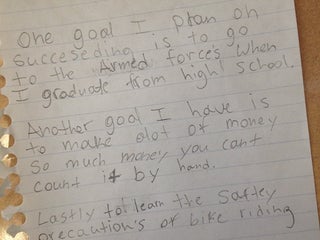 One goal I plan on
succeseding is to go
to the Armed forces when
I graduate from high school.
Another goal I have is
to make alot of money
so much money you cant
count it by hand.
Lastly to learn the saftey
precaution's of bike riding